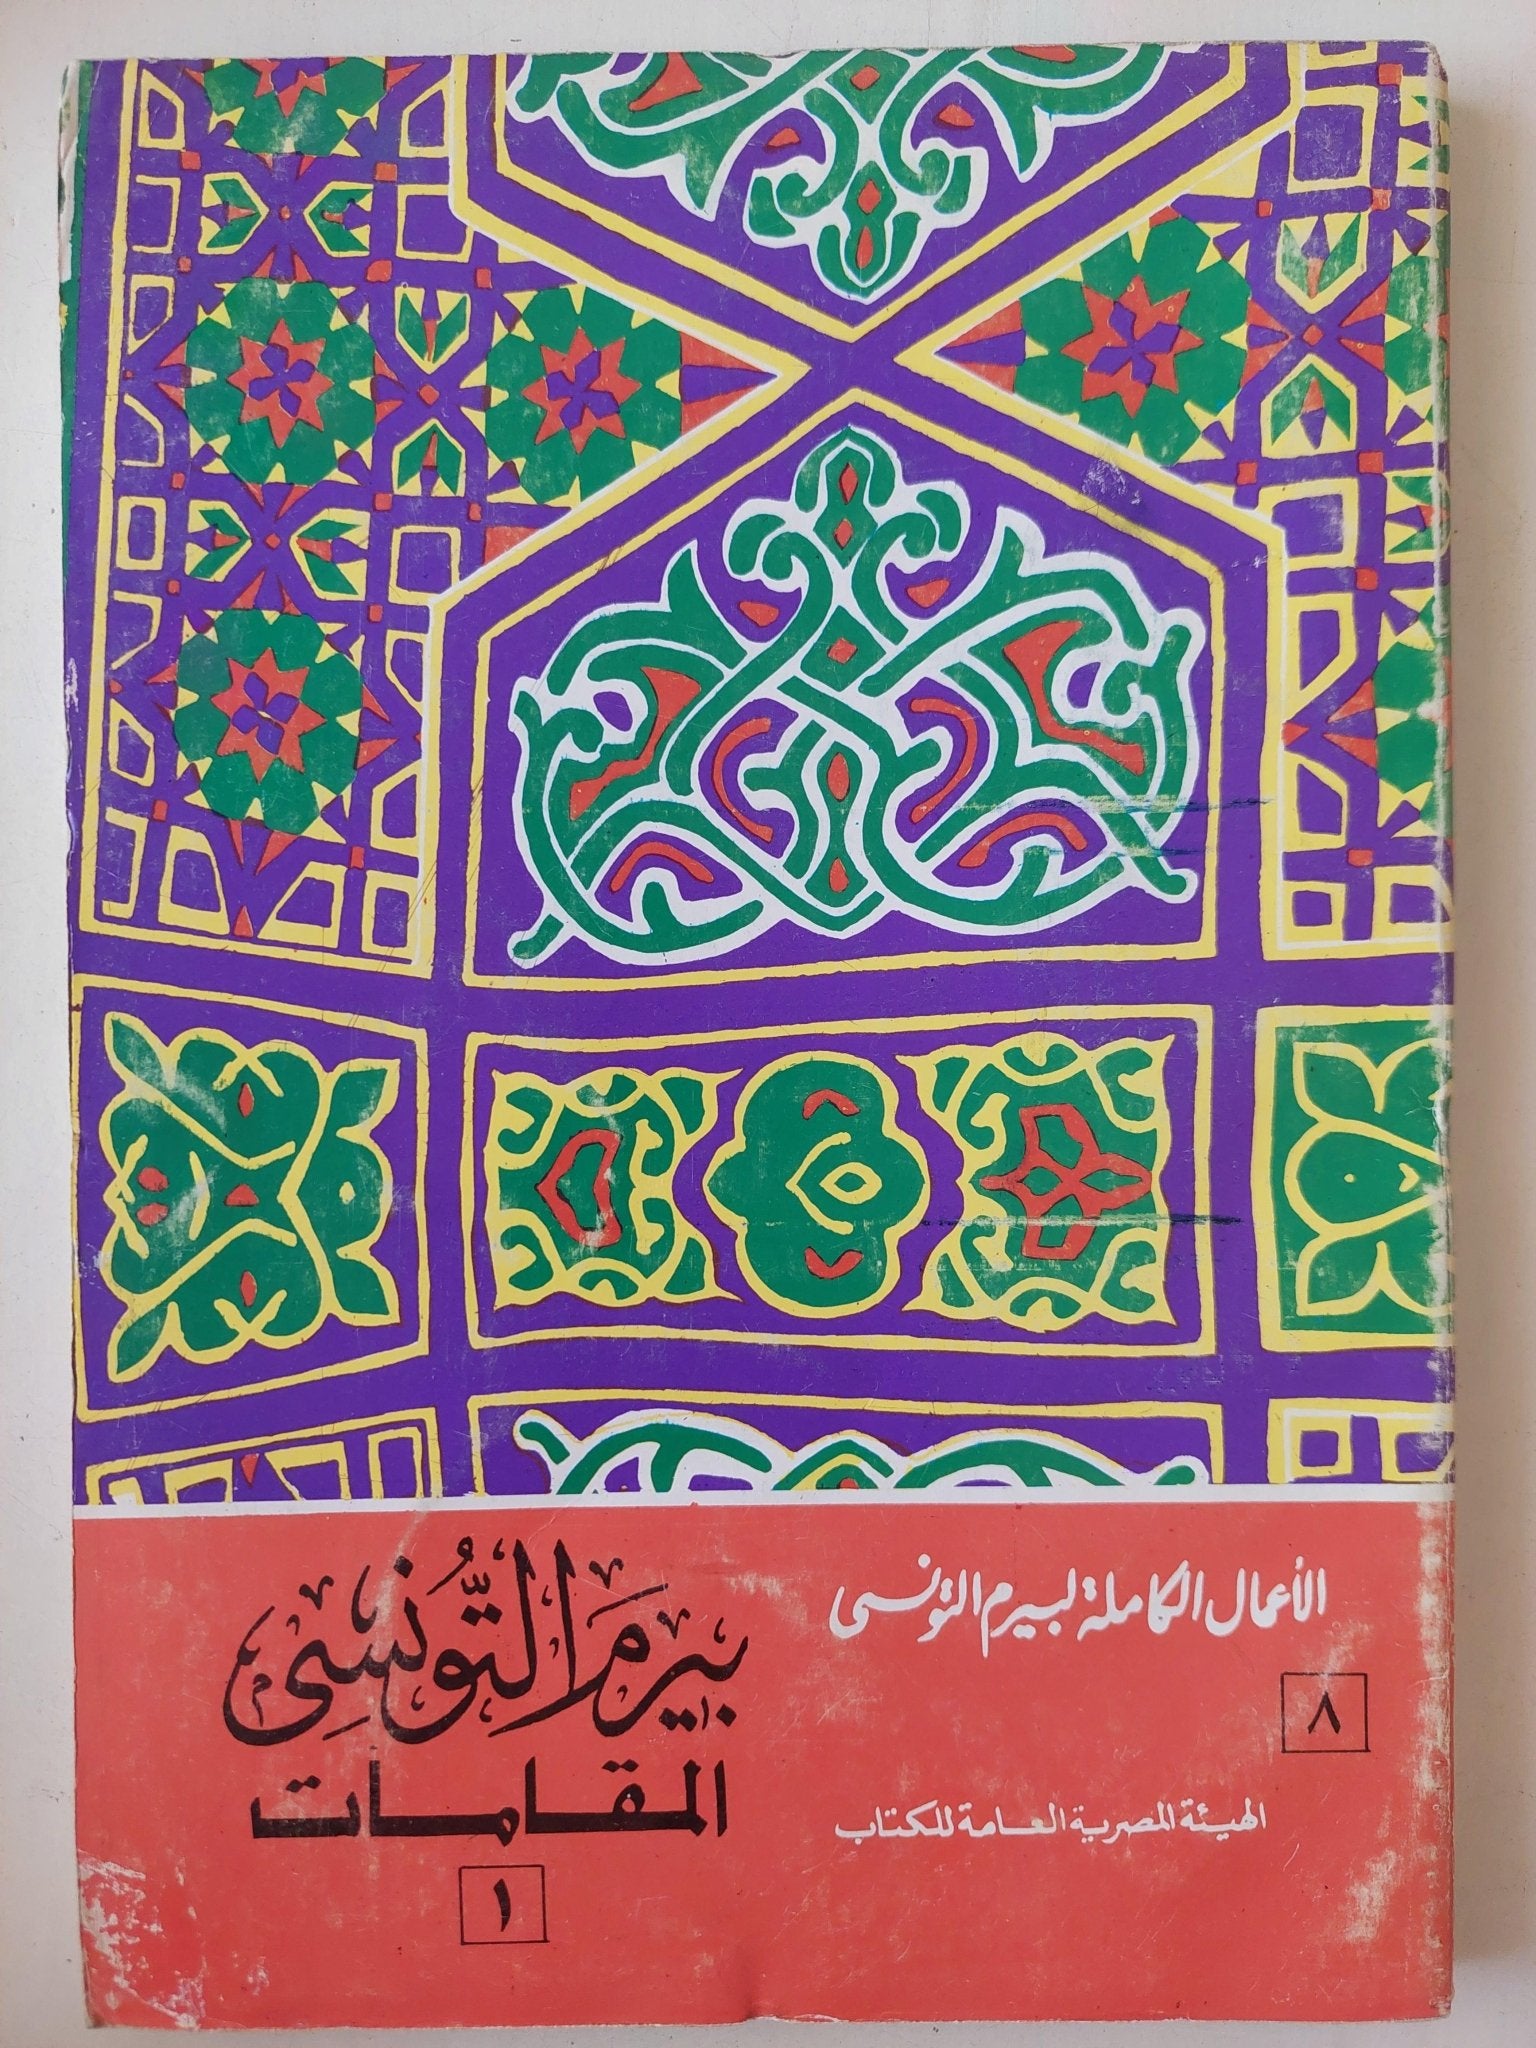 الأعمال الكاملة لبيرم التونسى
٨
الهيئة المصرية العامة للكتاب
بيرمَ التُّونسِى
المقامات
١